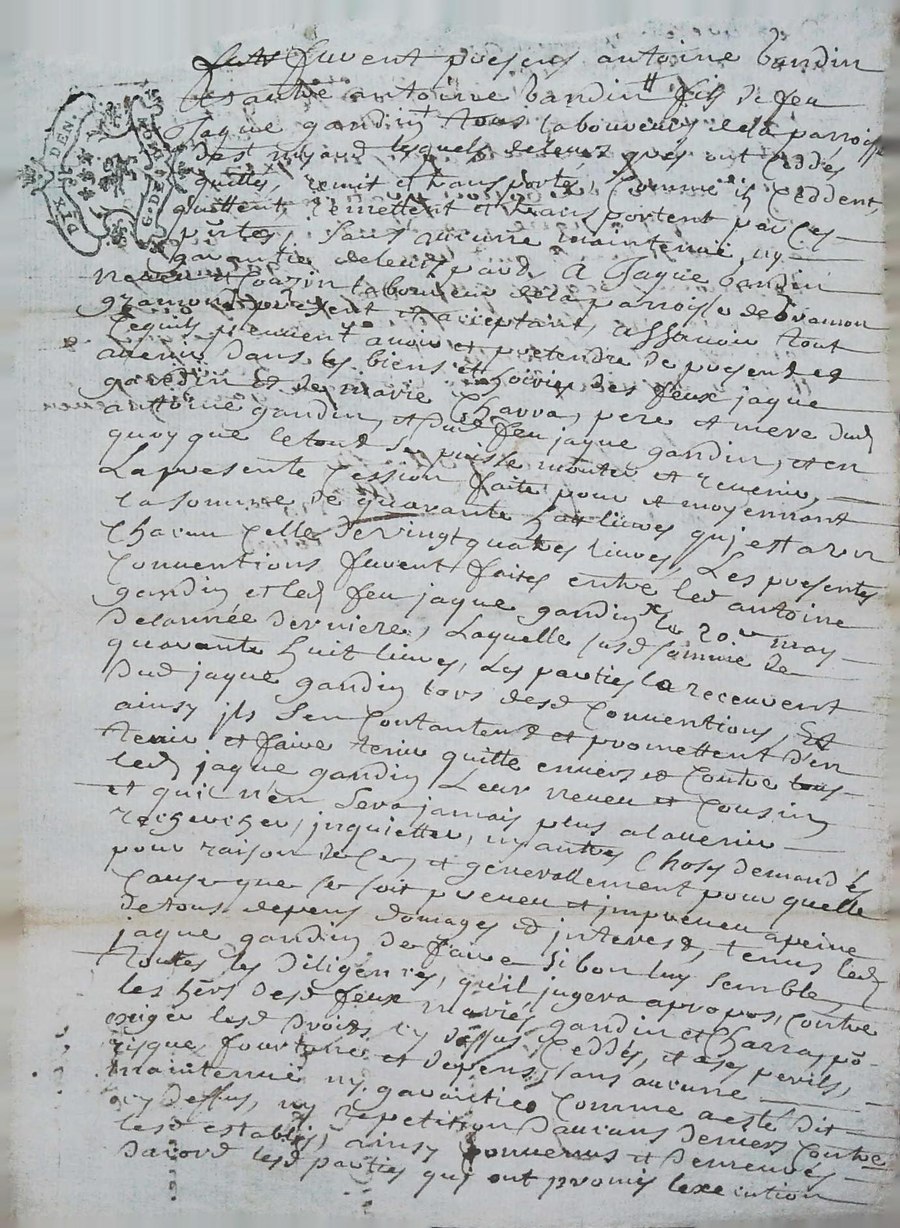 DIX DEN.
G. DE
furent presens antoine gandin
et autre antoine gandin fils de feu
Jaque gandin tous laboureurs de la parroisse
lesquels de leurs grés ont ceddés
quittés, remit et transportés, Comme ils Ceddent,
quittent, remettent et transportent par Ces
pntes, sans aucune maintenue, ny
garantie de leur part, A Jaque gandin
neveu et Cousin laboureur de la parroisse de
present et acceptant, assavoir tout
ce quils peuvent avoir et pretendre de present et
avenir dans les biens et hoiries des feux jaque
gandin et de marie Charra, pere et mere dud
antoine gandin, et dud feu jaque gandin, et en
quoy que le tout se puisse monter et revenir,
La presente Cession faite pour et moyennant
la somme de quarante huit livres qui est a un
Chacun Celle de vingt quatre livres, Les presentes
Conventions furent faites entre led antoine
gandin et led feu jaque gandin le 20e may
de lannée derniere, Laquelle susd somme de
quarante huit livres, Les parties la receurent
dud jaque gandin lors desd Conventions, Et
ainsy jls s'en Contantent et promettent d'en
tenir et faire tenir quitte envers et Contre tous
led jaque gandin Leur neveu et Cousin
et qu'il n'en sera jamais plus a lavenir
recherché, jnquietté, ny autre Chose demandés
pour raison de Ce, et generallement pour quelle
Cause que Ce soit preveu et jmpreveu a peine
de tous depens domages et jnterest, tenus led
jaque gandin de faire si bon luy semble,
toutes les diligences, qu'il jugera apropos, Contre
les hers desd feux mariés gandin et Charra, po-
exiger lesd droits cy dessus Ceddés, et a ses perils,
risque, fourtune et depens, sans aucune
maintenue ny garantie Comme a esté dit
cy dessus, ny repetition d'aucuns deniers Contre
lesd establis, ainsy Convenus et demeurés
dacord lesd parties qui ont promis lexecution